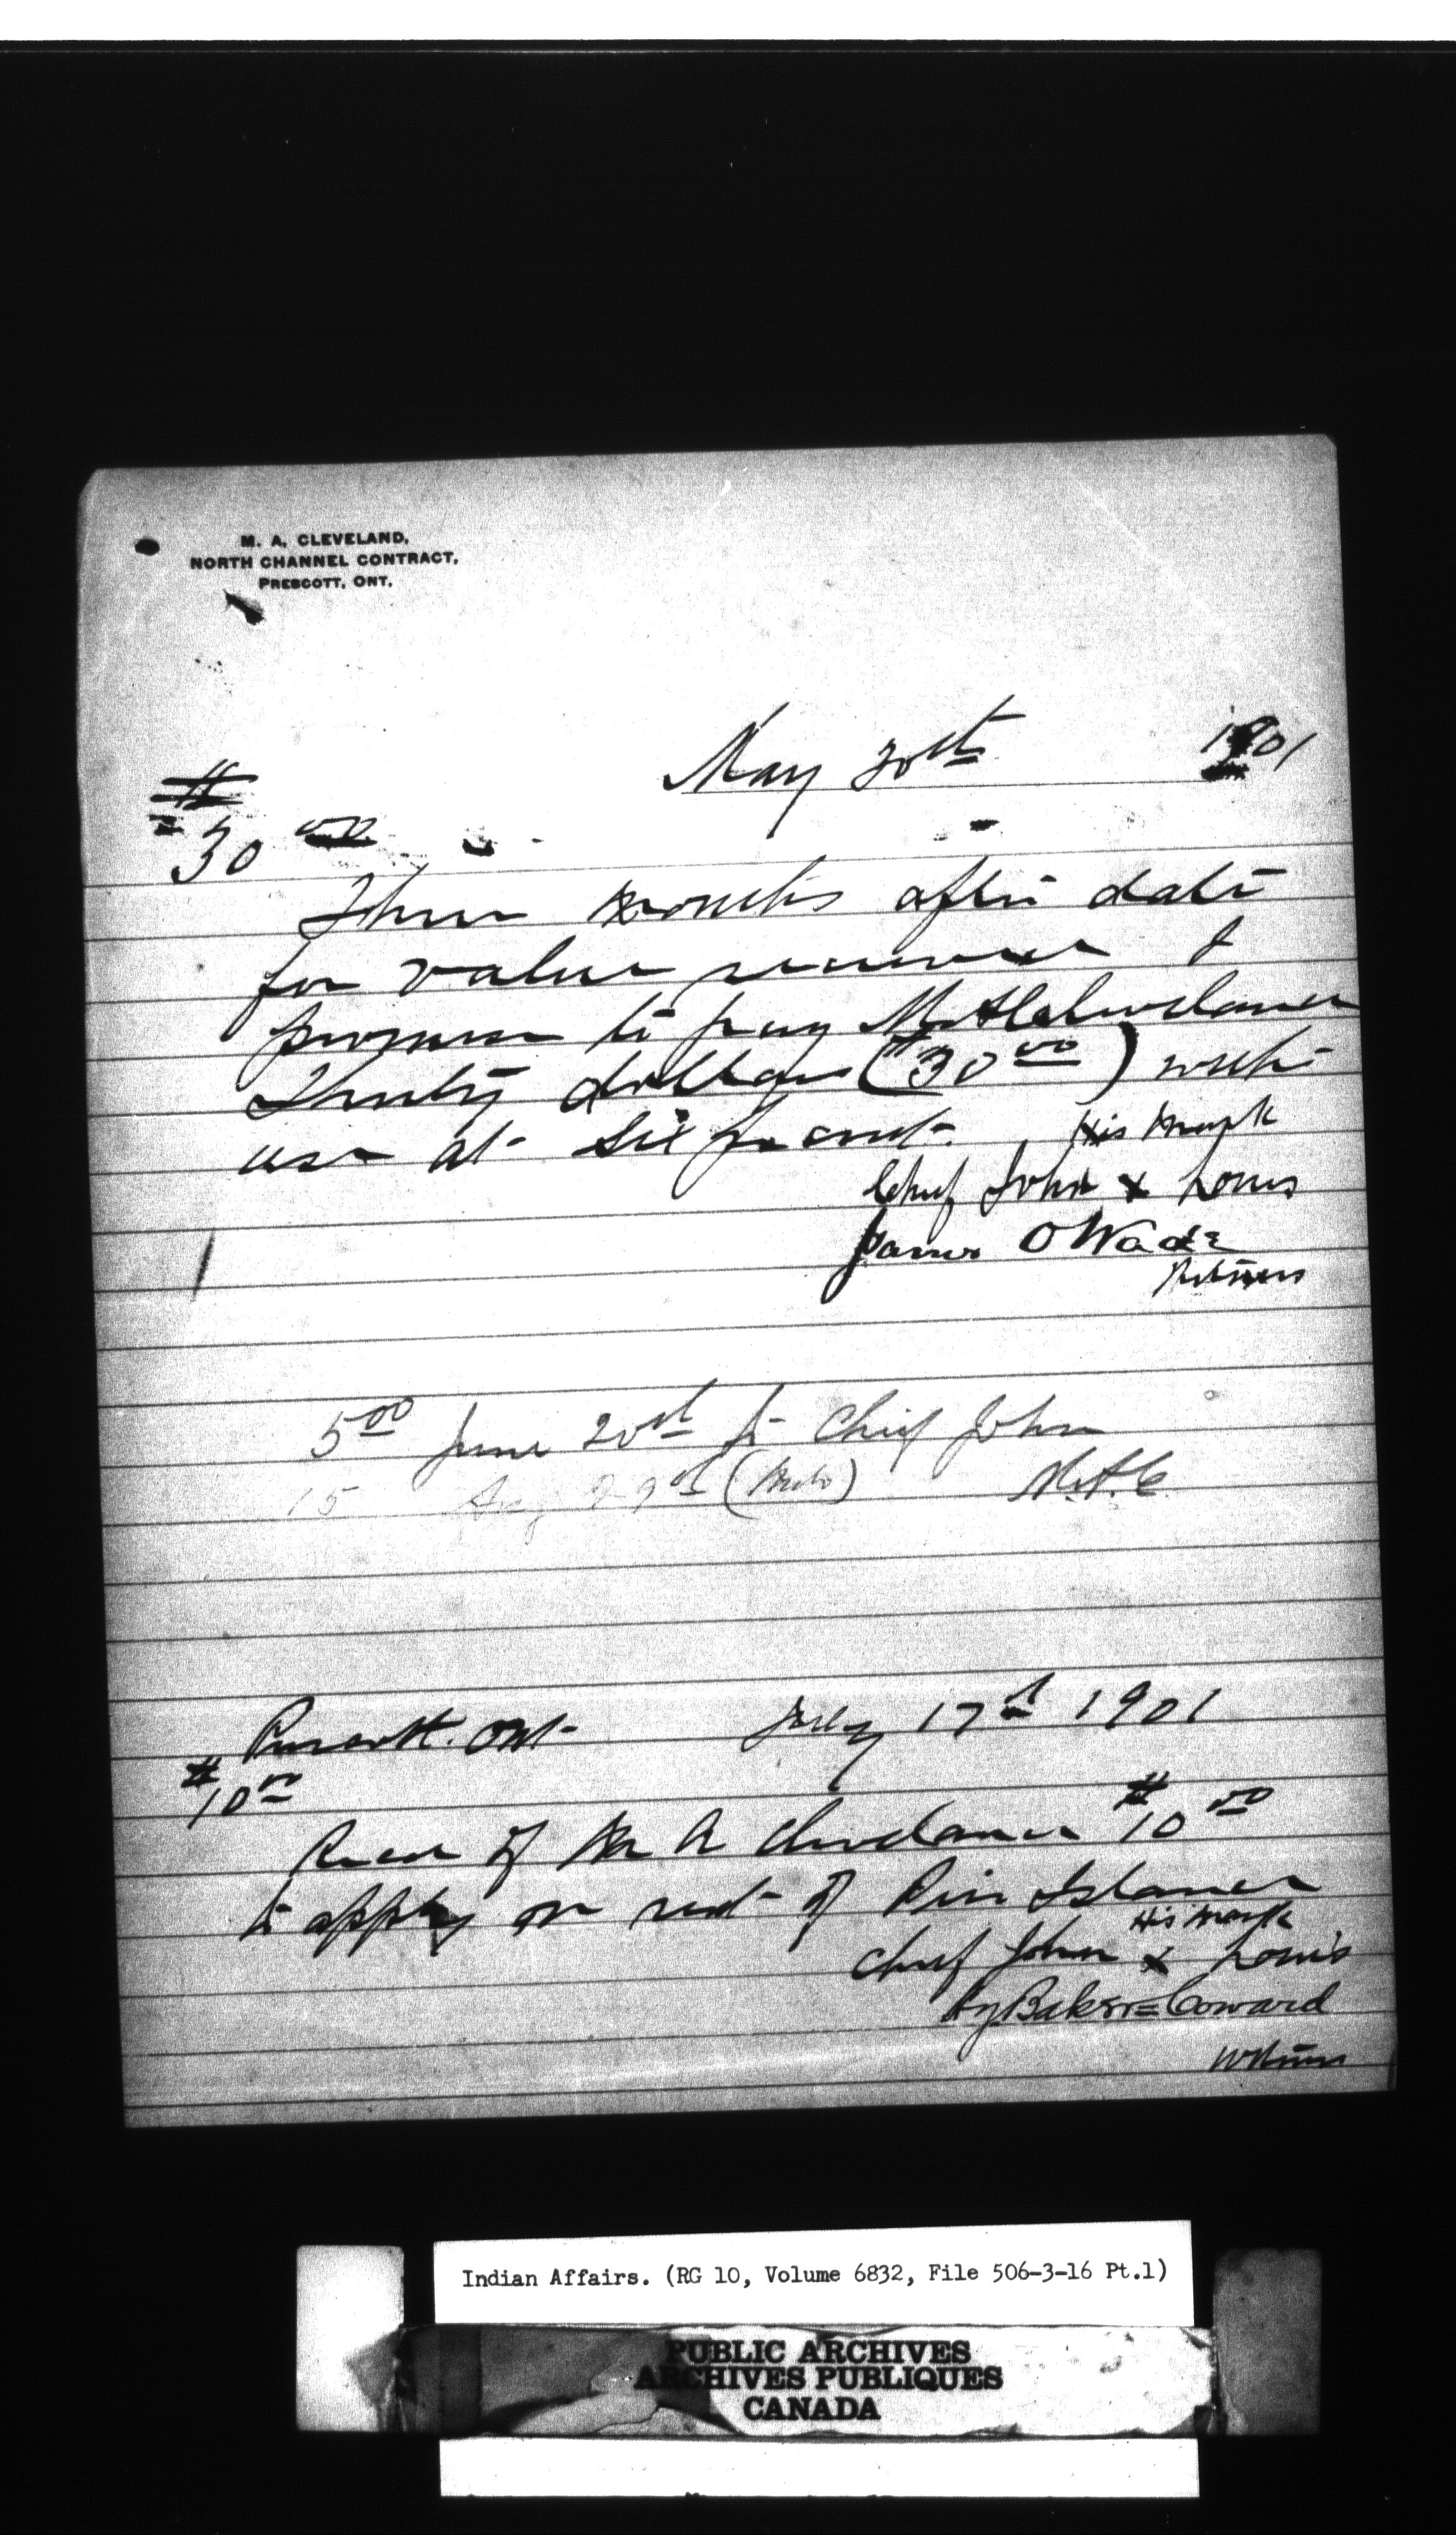 M. A. CLEVELAND,
NORTH CHANNEL CONTRACT,
PRESCOTT, ONT.
May 30th 1901
$30 00
Three months after date
for value received I
promise to pay M A Cleveland
Thirty dollars ($30 00) with
use at six per cent.
His Mark
Chief John x Louis
James O Wade
Witness
5 00 June 20th to Chief John
15 Aug 29th M.A.C.
Prescott. Ont July 17th 1901
$10 00
Recd of M A Cleveland $10 00
to apply on rent of Pier Island
His Mark
Chief John x Louis
By Baker = Coward
Witness
Indian Affairs. (RG 10, Volume 6832, File 506-3-16 Pt.1)
PUBLIC ARCHIVES
ARCHIVES PUBLIQUES
CANADA